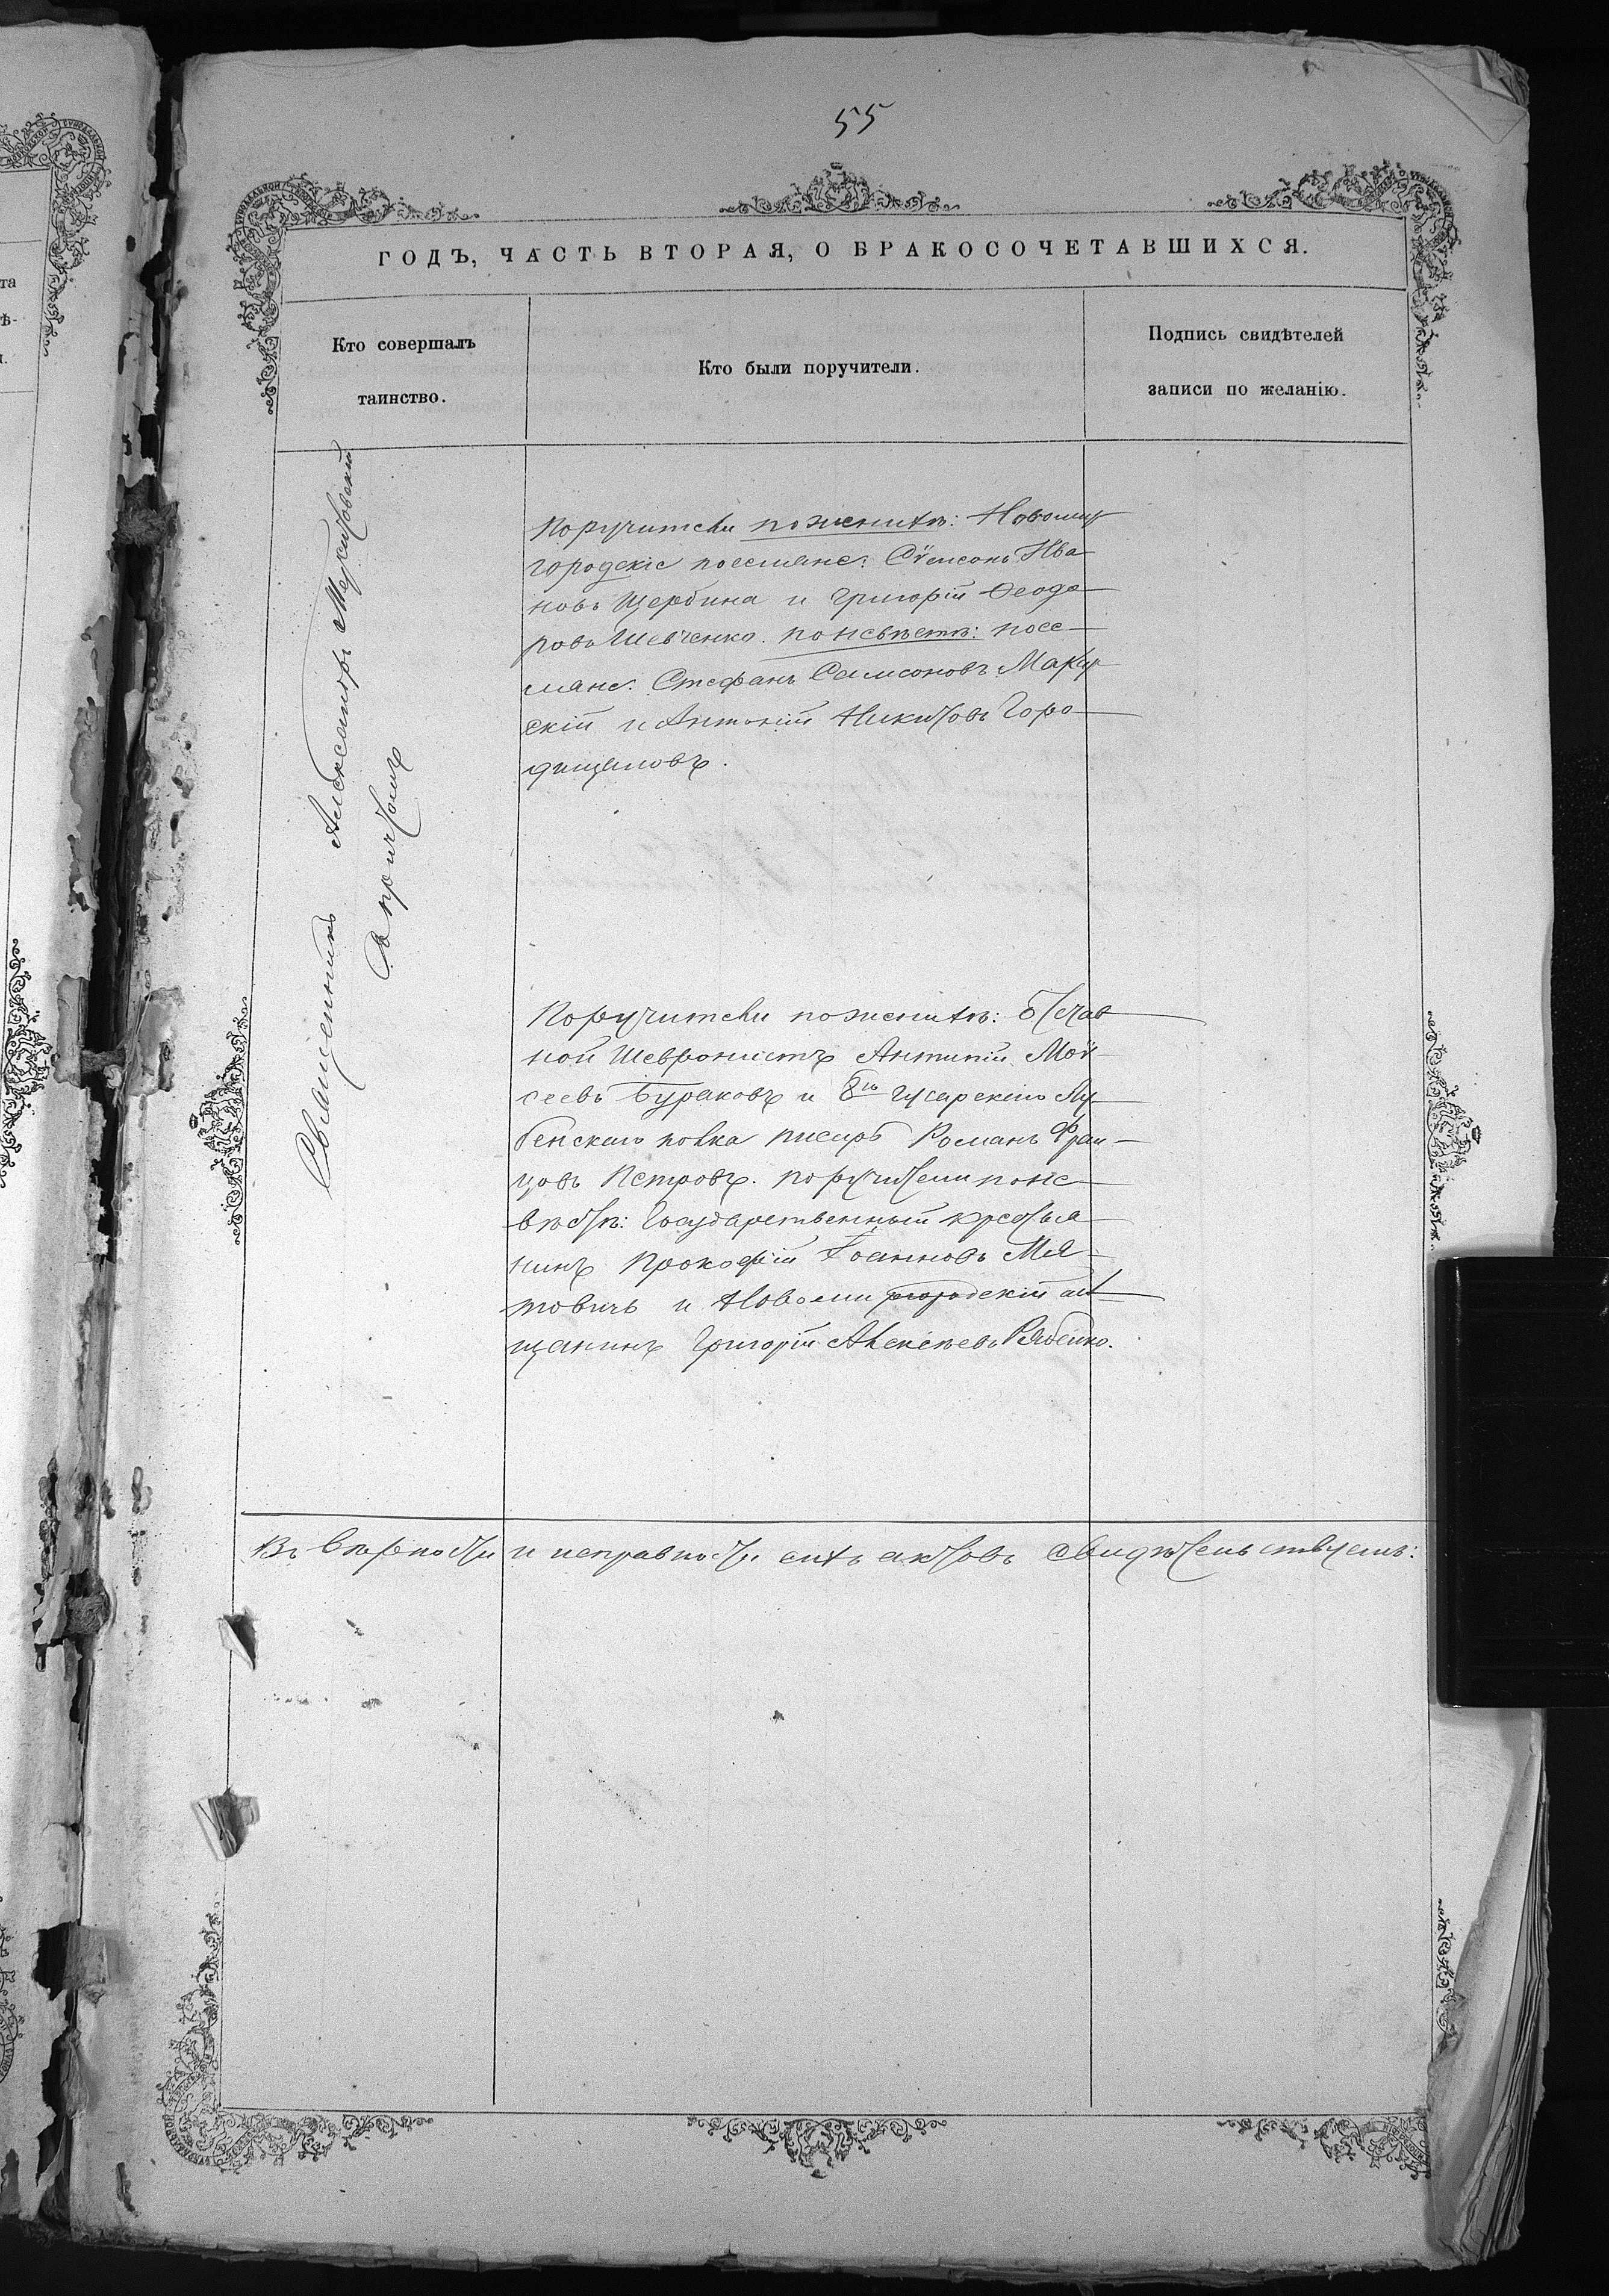 55
ГОДЪ, ЧАСТЬ ВТОРАЯ, О БРАКОСОЧЕТАВШИХСЯ.
Кто совершалъ
таинство.
Кто были поручители.
Подпись свидѣтелей
записи по желанію.
Священникъ Александръ
Съ причтомъ
Поручители по женихѣ: Новомир
городскіе поселяне: Сѵмсонъ Ива
новъ Щербина и Григорій Ѳеодо
ровъ Шевченко. по невѣстѣ: посе
ляне: Стефанъ Самсоновъ
скій и Антоній Никитовъ Горо
дищановъ.
Поручители по женихѣ:
ной Шевронистъ Антипій Моѵ
сеевъ Бураковъ и 8го Гусарскаго Лу
бенскаго полка писарь Романъ Фран
цовъ Петровъ. поручители по не
вѣстѣ: Государственный крестья
нинъ Прокофій Іоанновъ Мя
товичъ и Новомиргородскій мѣ
щанинъ Григорій Алексѣевъ Рябенко.
Въ вѣрности и исправности сихъ актовъ свидѣтельствуемъ: